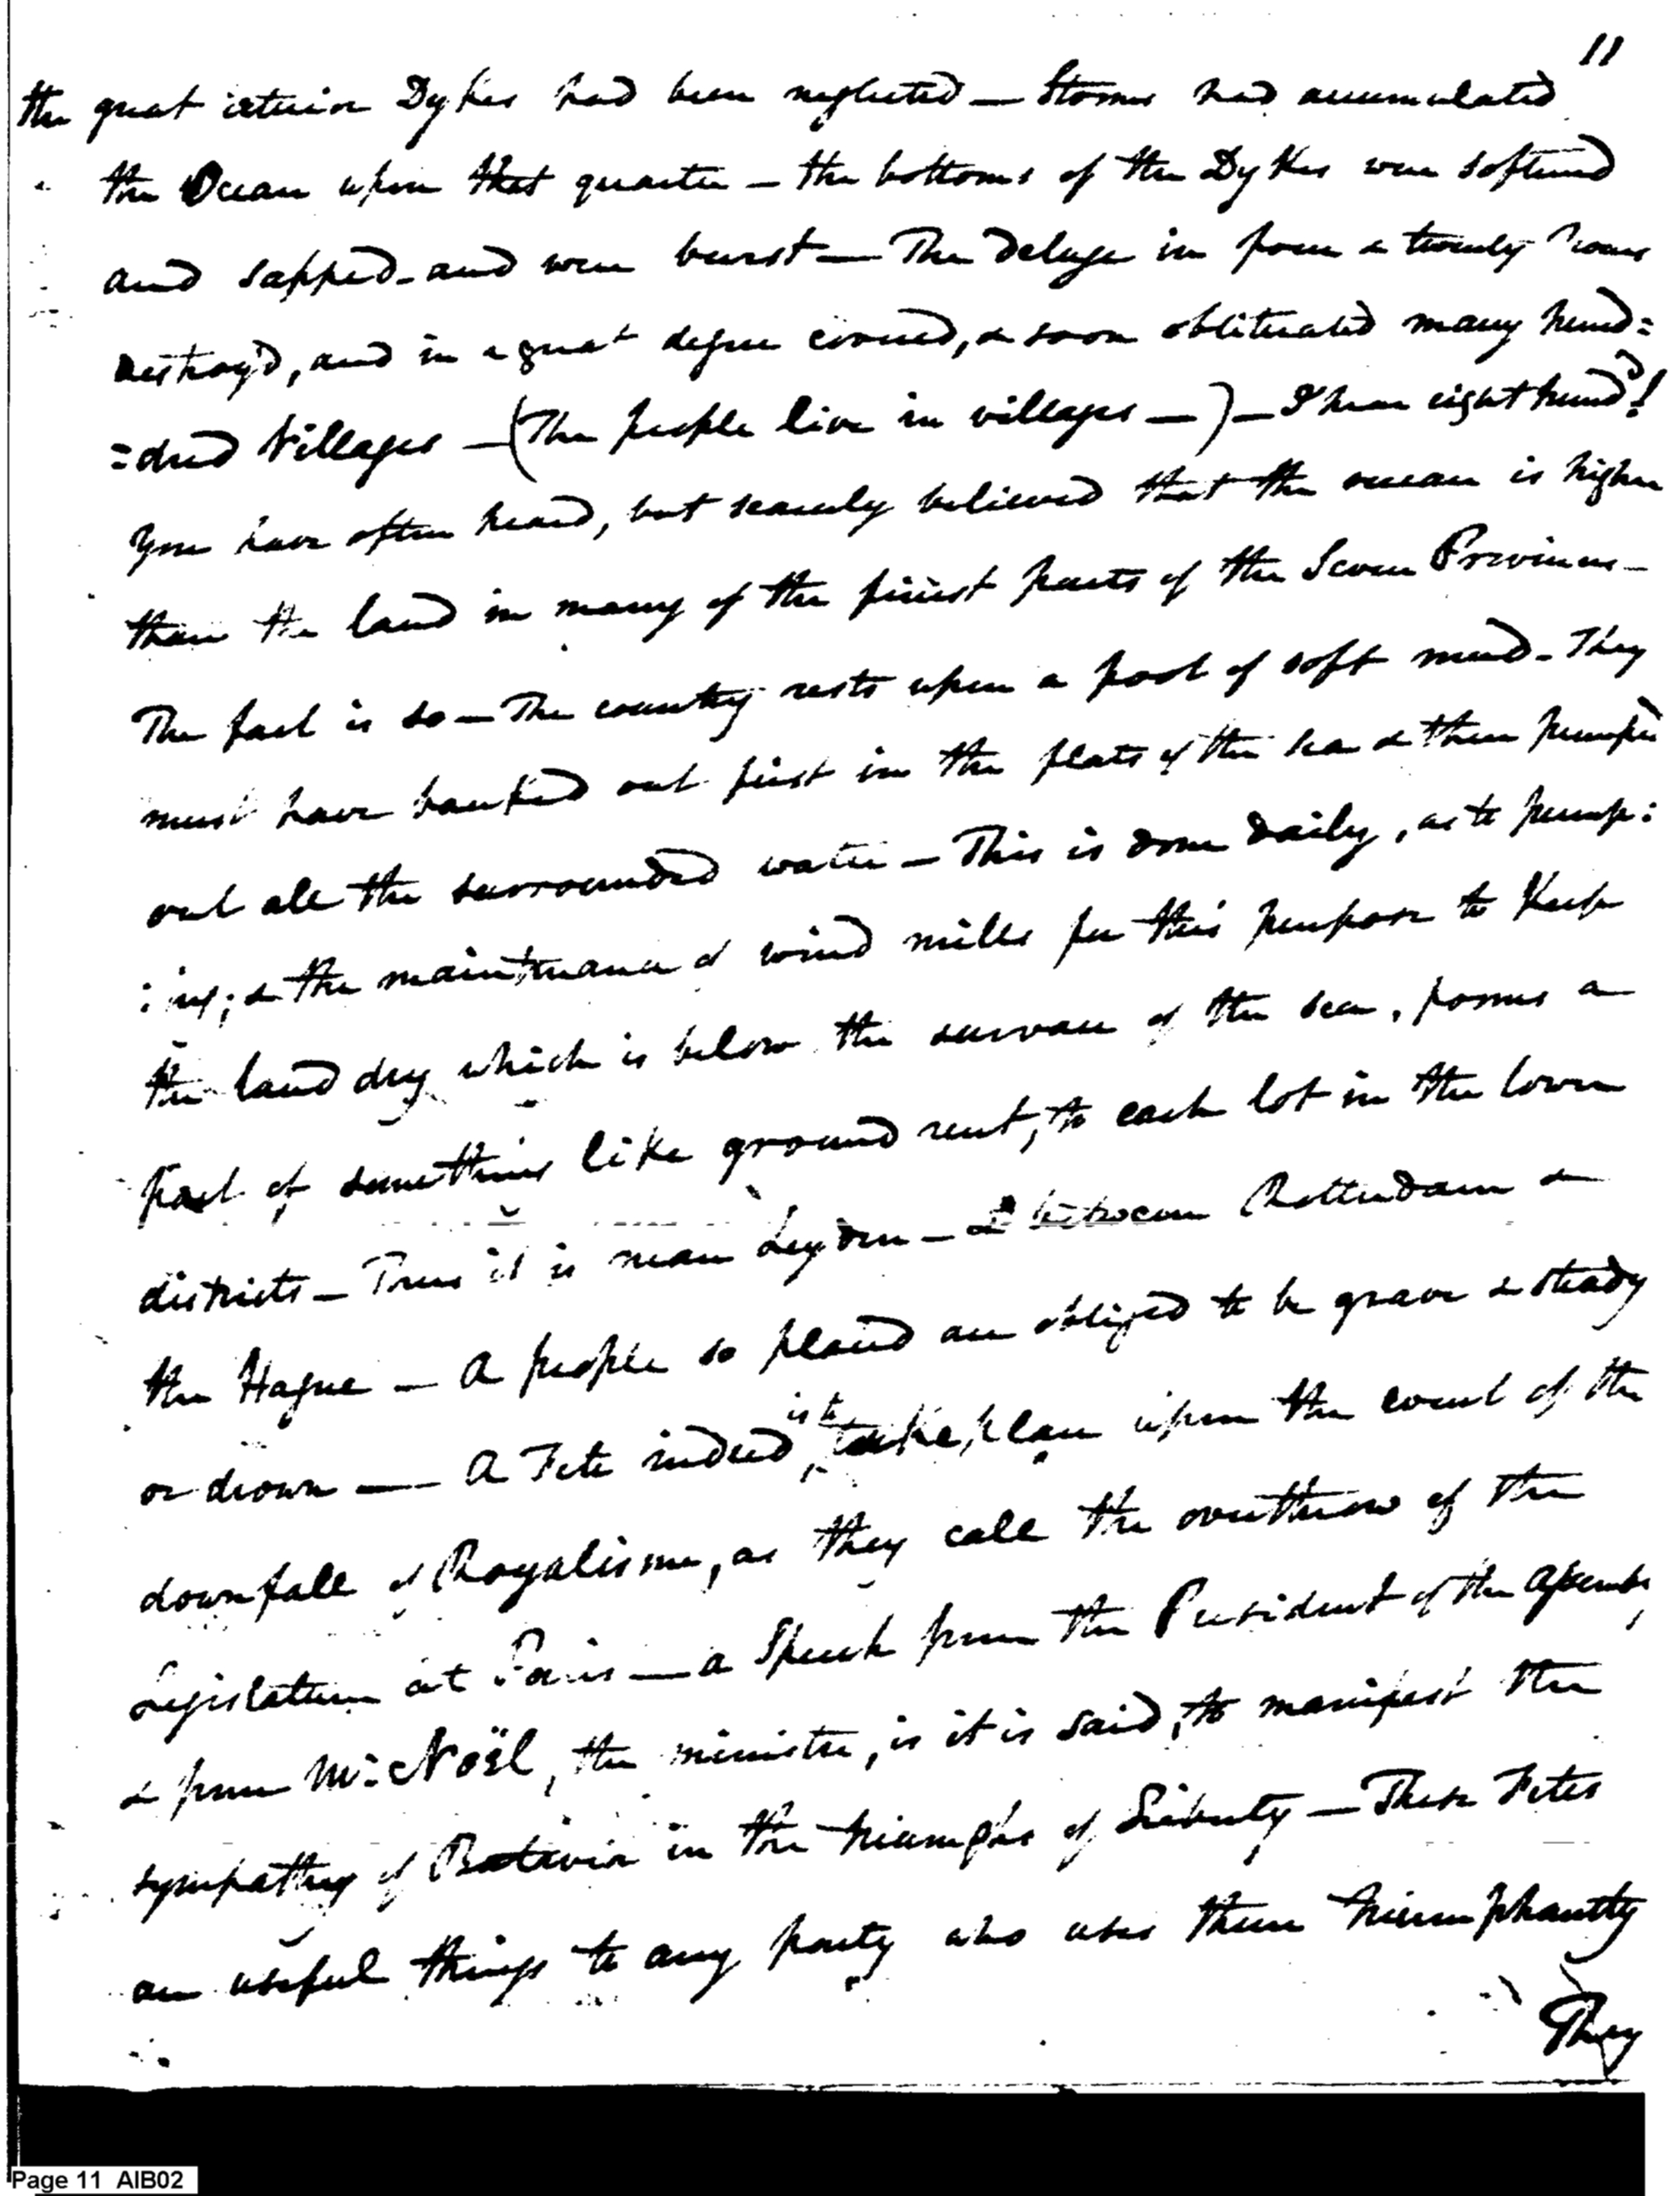 11
the great interior Dykes had been neglected — Storms had accumulated
the Ocean upon that quarter — the bottoms of the Dykes were softened
and sapped - and were burst — The Deluge in four & twenty hours
destroy'd, and in a great degree covered, & soon obliterated many hund=
=dred Villages — (The people live in villages —) — I hear eight hund.d!
You have often heard, but scarcely believed that the ocean is higher
than the land in many of the finest parts of the Seven Provinces —
The fact is so — The country rests upon a pool of soft mud - They
must have banked out first in the flats of the sea & then pumped
out all the surrounded water — This is done daily, as to pump:
:ing; & the maintenance of wind mills for this purpose to Keep
the land dry which is below the survace of the sea, forms a
part of something like ground rent, to each lot in the lower
districts — Thus it is near Leyden — & between Rotterdam &
the Hague — A people so placed are obliged to be grave & steady
or drown — A Fete indeed, is to take place upon the event of the
downfall of Royalisme, as they call the overthrow of the
Legislature at Paris — a Speech from the President of the Assembly
& from Mr. Noël, the minister, is it is said, to manifest the
sympathy of Batavia in the triumphs of Liberty — These Fetes
are useful things to any party who uses them triumphantly
They
Page 11 AIB02